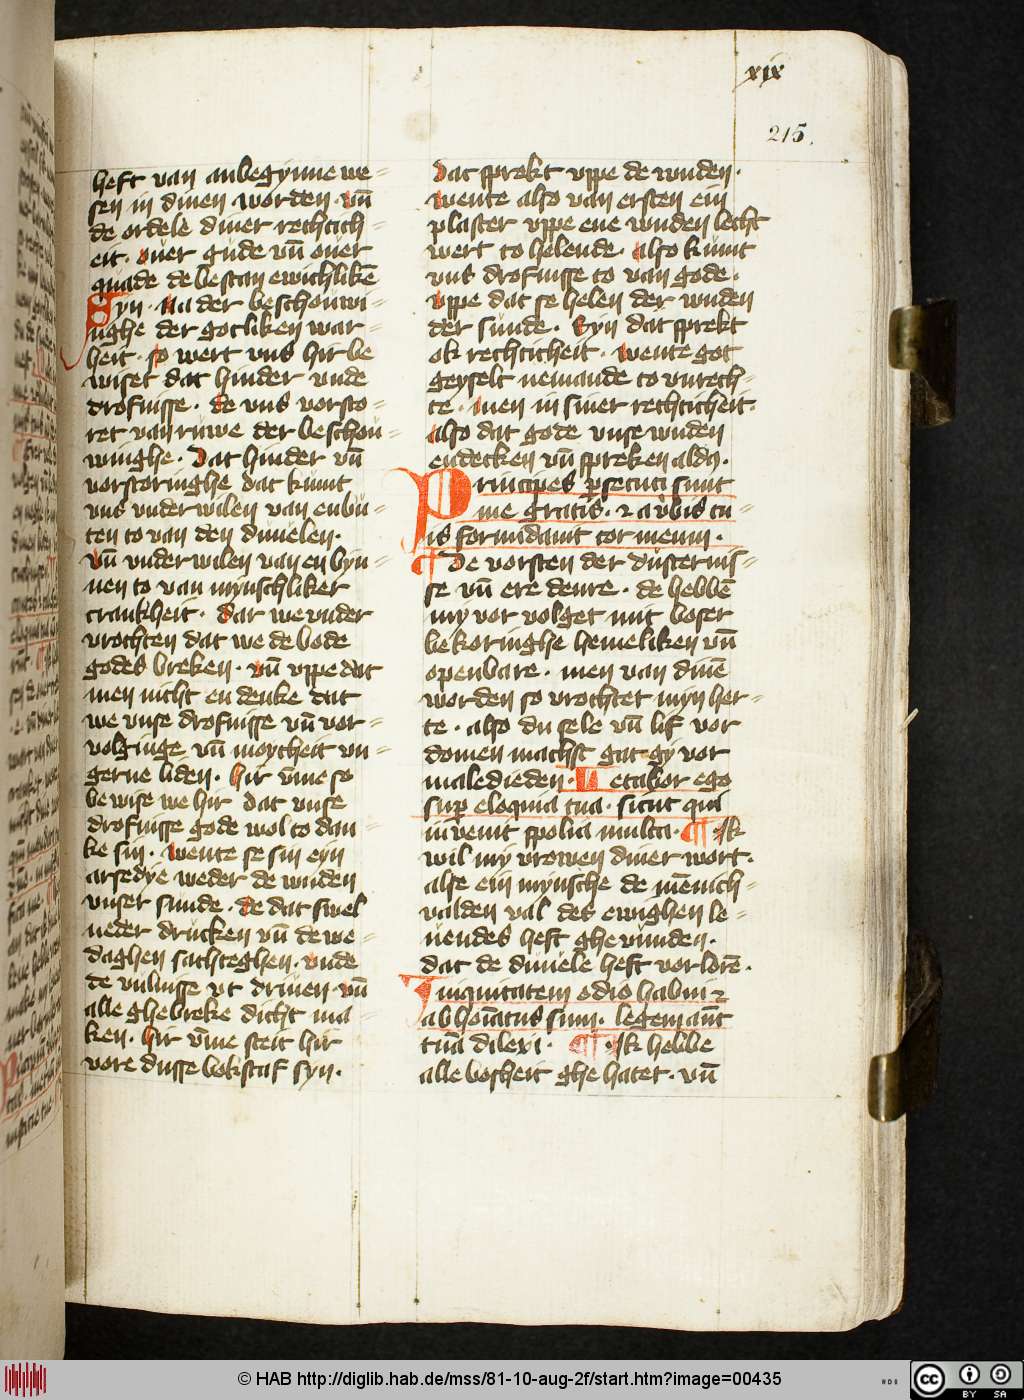 xix
215.
heft van anbegynne we=
sen in dinen worden vn̄
de ordele diner rechtich=
eit. ouer gude vn̄ ouer
quade de bestan ewichlikē
Syn. Na der beschouwi=
nghe der gotliken war=
heit. so wert vns hir be
wiset dat hinder vnde
drofnisse. de vns vorsto=
ret van ruwe der beschou=
winghe. Dat hinder vn̄
vorstoringhe dat kumt
vns vnder wilen van enbu=
ten to van den duuelen.
Vn̄ vnder wilen van en byn=
nen to van mynschliker
crankheit. dar we vnder
vrochten dat we de bode
godes breken. vn̄ vppe dat
men nicht en denke dat
we vnse drofnisse vn̄ vor=
volginge vn̄ moytheit vn=
gerne liden. hir v̄me so
bewise we hir dat vnse
drofnisse gode wol to dan=
ke sin. wente se sin eyn
arsedye weder de wnden
vnser sunde. de dat swel
neder drucken vn̄ de we=
daghen sachteghen. vnde
de vulnisse vt driuen vn̄
alle ghebreke dicht ma=
ken. hir v̄me steit hir
vore dusse bokstaf syn.
dat sprekt vppe de wnden.
wente also van ersten ein
plaster vppe ene wnden lecht
wert to helende. also kumt
vns drofnisse to van gode.
vppe dat se helen der wnden
der sunde. Syn dat sprekt
ok rechticheit. wente got
geyselt nemande to vnrech=
te. men in siner rechticheit.
also dat gode vnse wnden
endecken vn̄ spreken aldꝰ.
Principes ꝑsecuti sunt
me gratis. ⁊ a v̓bis tu=
is formidauit cor meum.
¶ De vorsten der dusternis=
se vn̄ ere denre. de hebbē
my vor volget mit boser
bekoringhe hemeliken vn̄
openbare. men van dinē
worden so vrochtet myn her=
te. also du sele vn̄ lif vor
domen machst gat gy vor
maledieden. Letabor ego
suꝑ eloquia tua. sicut qui
inuenit spolia multa. ¶ Ik
wil my vrowen diner wort.
alse ein mynsche de mēnich=
valden val des ewighen le=
uendes heft ghevunden.
dat de duuele heft vorlorē.
Iniquitatem odio habui ⁊
abhoīatus sum. legem aūt
tuā dilexi. ¶ Ik hebbe
alle bosheit ghe hatet. vn̄
© HAB http://diglib.hab.de/mss/81-10-aug-2f/start.htm?image=00435
HAB
cc BY SA